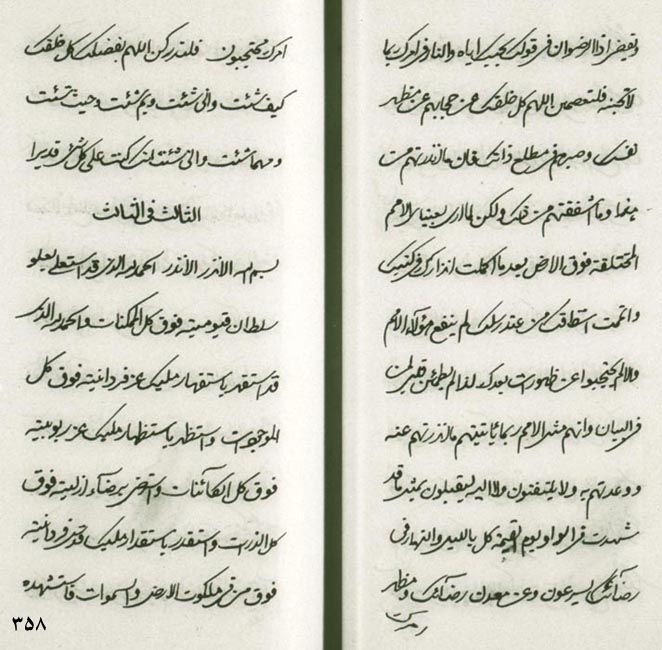 اذا الرضوان في قولك اياه والنار في امرك بما
لا تحبنه فلتعصمن اللهم كل خلقك عن حجابهم عن مظهر
نفسك وصبرهم في مطلع ذاتك فان ما من
وما من ولكن لما ارى الامم
المختلفة فوق الارض بعد ما اكملت في كتبك
واتممت من عند رسلك لم ينفع هؤلاء الامم
والا لم يحتجبوا عن ظهورات بعدك لذا لم يطمئن قلبي لمن
في البيان وانهم مثل الامم ربما يأتينهم ما انذرتهم عنه
ووعدتهم به ولا يلتفتون ولا اليه ليقبلون بمثل ما قد
شهدت في يوم القيمة كل بالليل والنهار في
رضائك يسرعون وعن معدن رضائك ومظهر
امرك
امرك محتجبون فلتدركن اللهم بفضلك كل خلقك
كيف شئت وانى شئت وبم شئت وحيث شئت
ومهما شئت وانى شئت انك كنت على كل شئ قديرا
الثالث في الثالث
بسم الله الاقدر الاقدر الحمد لله الذي قد استعلى بعلو
سلطان قيوميته فوق كل الممكنات والحمد لله الذي
قد استقهر باستقهار مليك عز فردانيته فوق كل
الموجودات واستظهر باستظهار مليك عز ربوبيته
فوق كل الكائنات وارتضى برضاء ازليته فوق
كل الذرات واستقدر باستقدار مليك فردانيته
فوق من في ملكوت الارض والسموات فاستشهده
٣٥٨